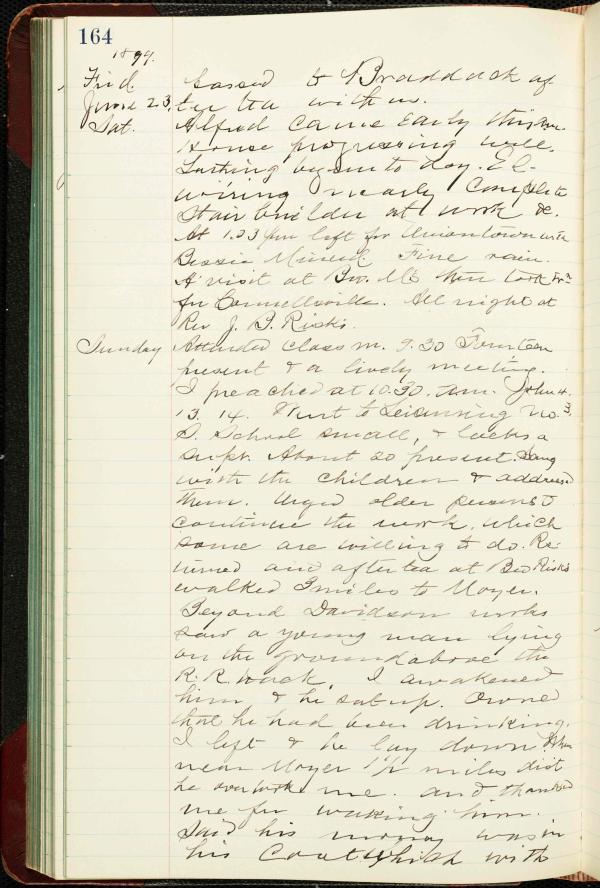 164
1899.
Frid. passed to Braddock af-
June 23. ter tea with us.
Sat. Alfred came early this am.
House progressing well.
Lathing begun to day. El-
wiring nearly complete
Stair builder at work &c.
At 1.23 pm left for Uniontown with
Bessie Minerd. Fine rain.
A visit at Bro. M's then took trn
for Connellsville. All night at
Rev J. B. Risk's.
Sunday Attended class m. 9.30 Fourteen
present & a lively meeting.
I preached at 10.30. am. John 4.
13. 14. Went to Leisenring No. 3.
S. School small, & lacks a
supt. About 20 present. Sang
with the children & addressed
them. Urged older persons to
continue the work, which
some are willing to do. Re-
turned and after tea at Bro Risk's
walked 3 miles to Moyer.
Beyond Davidson works
saw a young man lying
on the ground above the
R. R. track, I awakened
him & he sat up. Owned
that he had been drinking.
I left & he lay down. When
near Moyer 1 1/2 miles dist
he overtook me. and thanked
me for waking him.
Said his money was in
his coat which with